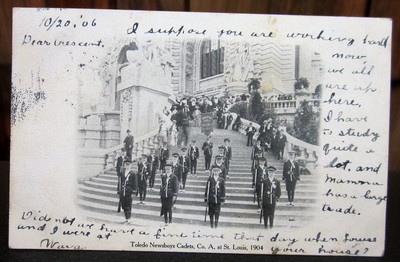 10/20,'06
I suppose you are working hard
Dear Crescent.
now,
we all
are up
here,
I have
to study
quite a
lot, and
Mamma
has a large
trade.
Did not we have a fine time that day when Louise
and I were at your house?
Toledo Newsboys Cadets, Co. A, at St. Louis, 1904